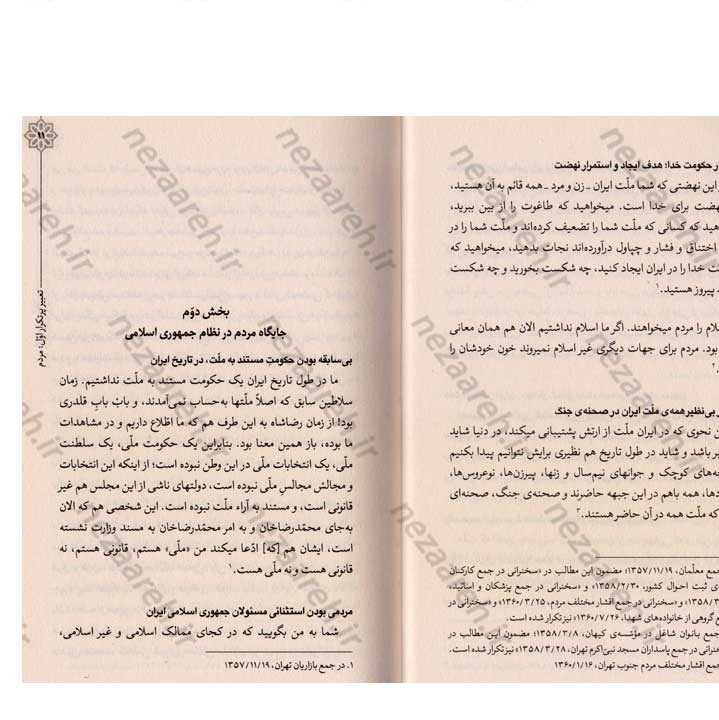 ر حکومت خدا؛ هدف ایجاد و استمرار نهضت
این نهضتی که شما ملّت ایران ـ زن و مرد ـ همه قائم به آن هستید،
هضت برای خدا است. میخواهید که طاغوت را از بین ببرید،
هید که کسانی که ملّت شما را تضعیف کرده‌اند و ملّت شما را در
اختناق و فشار و چپاول درآورده‌اند نجات بدهید، میخواهید که
ت خدا را در ایران ایجاد کنید، چه شکست بخورید و چه شکست
پیروز هستید.۱
لام را مردم میخواهند. اگر ما اسلام نداشتیم الان هم همان معانی
بود. مردم برای جهات دیگری غیر اسلام نمیروند خون خودشان را
.۲
بی‌نظیر همه‌ی ملّت ایران در صحنه‌ی جنگ
ن نحوی که در ایران ملّت از ارتش پشتیبانی میکند، در دنیا شاید
یر باشد و شاید در طول تاریخ هم نظیری برایش نتوانیم پیدا بکنیم
چه‌های کوچک و جوانهای نیم‌سال و زنها، پیرزن‌ها، نوعروس‌ها،
دها، همه باهم در این جبهه حاضرند و صحنه‌ی جنگ، صحنه‌ای
که ملّت همه در آن حاضر هستند.۳
جمع معلّمان، ۱۳۵۷/۱۱/۱۹؛ مضمون این مطالب در «سخنرانی در جمع کارکنان
ی ثبت احوال کشور، ۱۳۵۸/۲/۳۰» و «سخنرانی در جمع پزشکان و اساتید،
۱۳۵۸/۳» و «سخنرانی در جمع اقشار مختلف مردم، ۱۳۶۰/۳/۲۵» و «سخنرانی در
ع گروهی از خانواده‌های شهدا، ۱۳۶۰/۷/۲۶» نیز تکرار شده است.
جمع بانوان شاغل در مؤسّسه‌ی کیهان، ۱۳۵۸/۳/۸؛ مضمون این مطالب در
خنرانی در جمع پاسداران مسجد نبیّ‌اکرم تهران، ۱۳۵۸/۳/۲۸» نیز تکرار شده است.
جمع اقشار مختلف مردم جنوب تهران، ۱۳۶۰/۱/۱۶
۱۱
تعبیر پرتکرار اوّل: مردم
بخش دوّم
جایگاه مردم در نظام جمهوری اسلامی
بی‌سابقه بودن حکومتِ مستند به ملّت، در تاریخ ایران
ما در طول تاریخ ایران یک حکومت مستند به ملّت نداشتیم. زمان
سلاطین سابق که اصلاً ملّتها به‌حساب نمی‌آمدند، و باب، بابِ قلدری
بود! از زمان رضاشاه به این طرف هم که ما اطّلاع داریم و در مشاهدات
ما بوده، باز همین معنا بود. بنابراین یک حکومت ملّی، یک سلطنت
ملّی، یک انتخابات ملّی در این وطن نبوده است؛ از اینکه این انتخابات
و مجالش مجالسِ ملّی نبوده است، دولتهای ناشی از این مجلس هم غیر
قانونی است، و مستند به آراء ملّت نبوده است. این شخصی هم که الان
به‌جای محمّدرضاخان و به امر محمّدرضاخان به مسند وزارت نشسته
است، ایشان هم [که] ادّعا میکند من «ملّی» هستم، قانونی هستم، نه
قانونی هست و نه ملّی هست.۱
مردمی بودن استثنائی مسئولان جمهوری اسلامی ایران
شما به من بگویید که در کجای ممالک اسلامی و غیر اسلامی،
۱. در جمع بازاریان تهران، ۱۳۵۷/۱۱/۱۹
nezaareh.ir
nezaareh.ir
nezaareh.ir
nezaareh.ir
nezaareh.ir
nezaareh.ir
nezaareh.ir
nezaareh.ir
nezaareh.ir